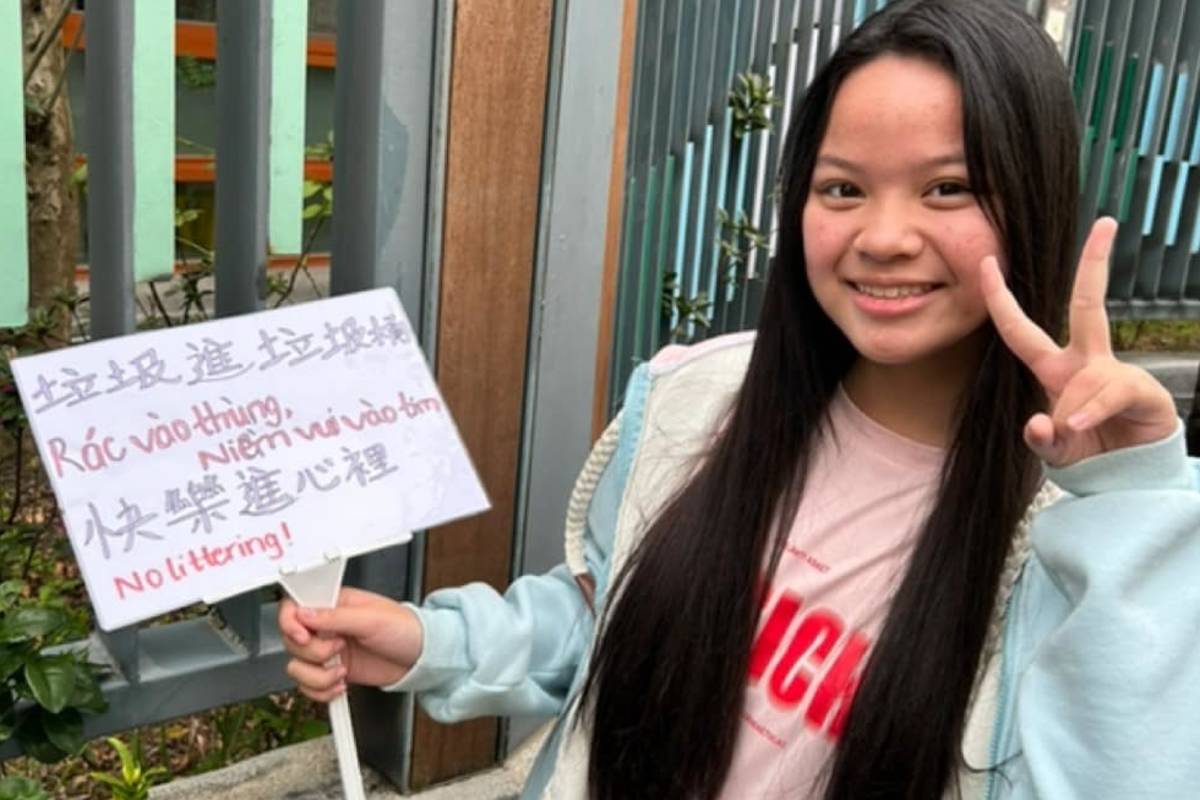 垃圾進垃圾桶
Rác vào thùng,
Niềm vui vào tim
快樂進心裡
No littering!